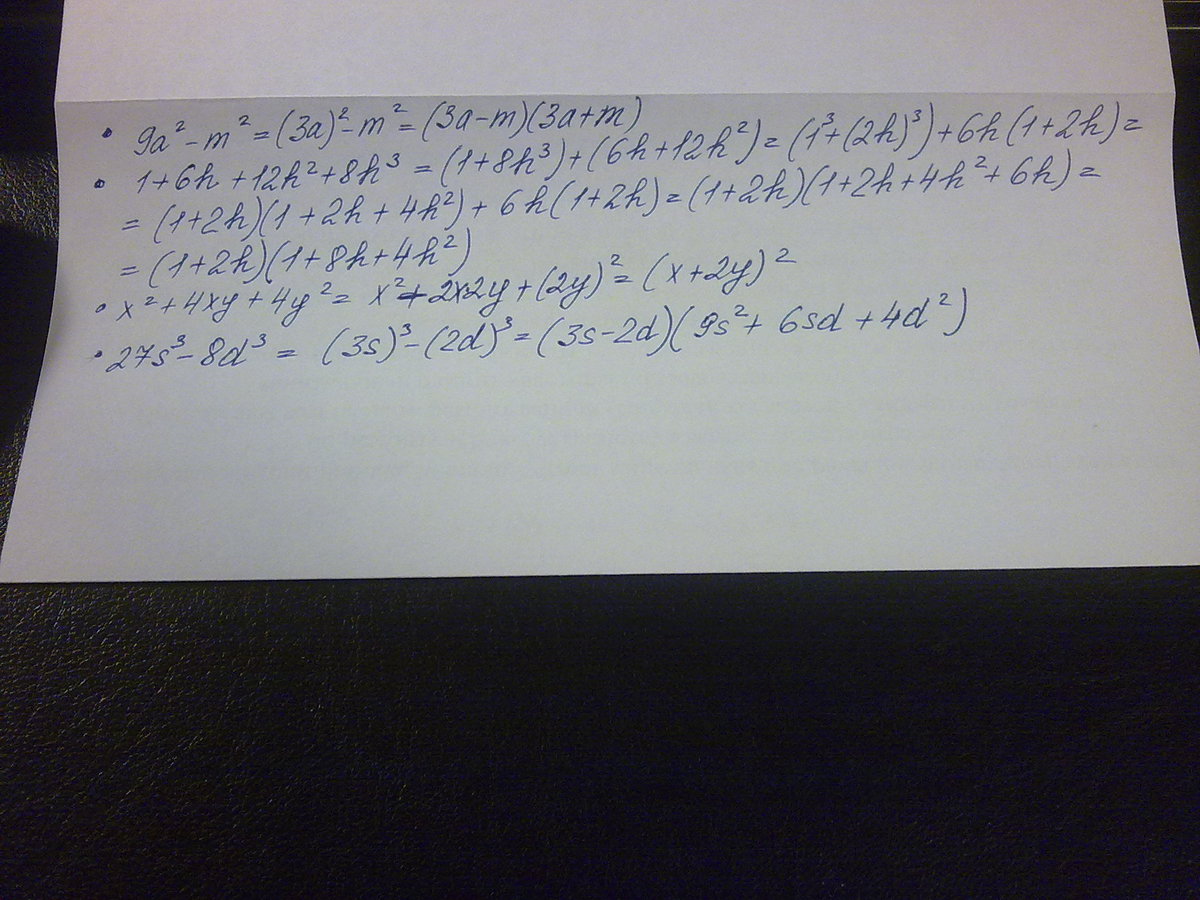 • 9a² - m² = (3a)² - m² = (3a-m)(3a+m)
• 1+6h+12h²+8h³ = (1+8h³)+(6h+12h²) = (1³+(2h)³)+6h(1+2h) =
= (1+2h)(1+2h+4h²)+6h(1+2h) = (1+2h)(1+2h+4h²+6h) =
= (1+2h)(1+8h+4h²)
• x²+4xy+4y² = x²+2x2y+(2y)² = (x+2y)²
• 27s³-8d³ = (3s)³-(2d)³ = (3s-2d)(9s²+6sd+4d²)